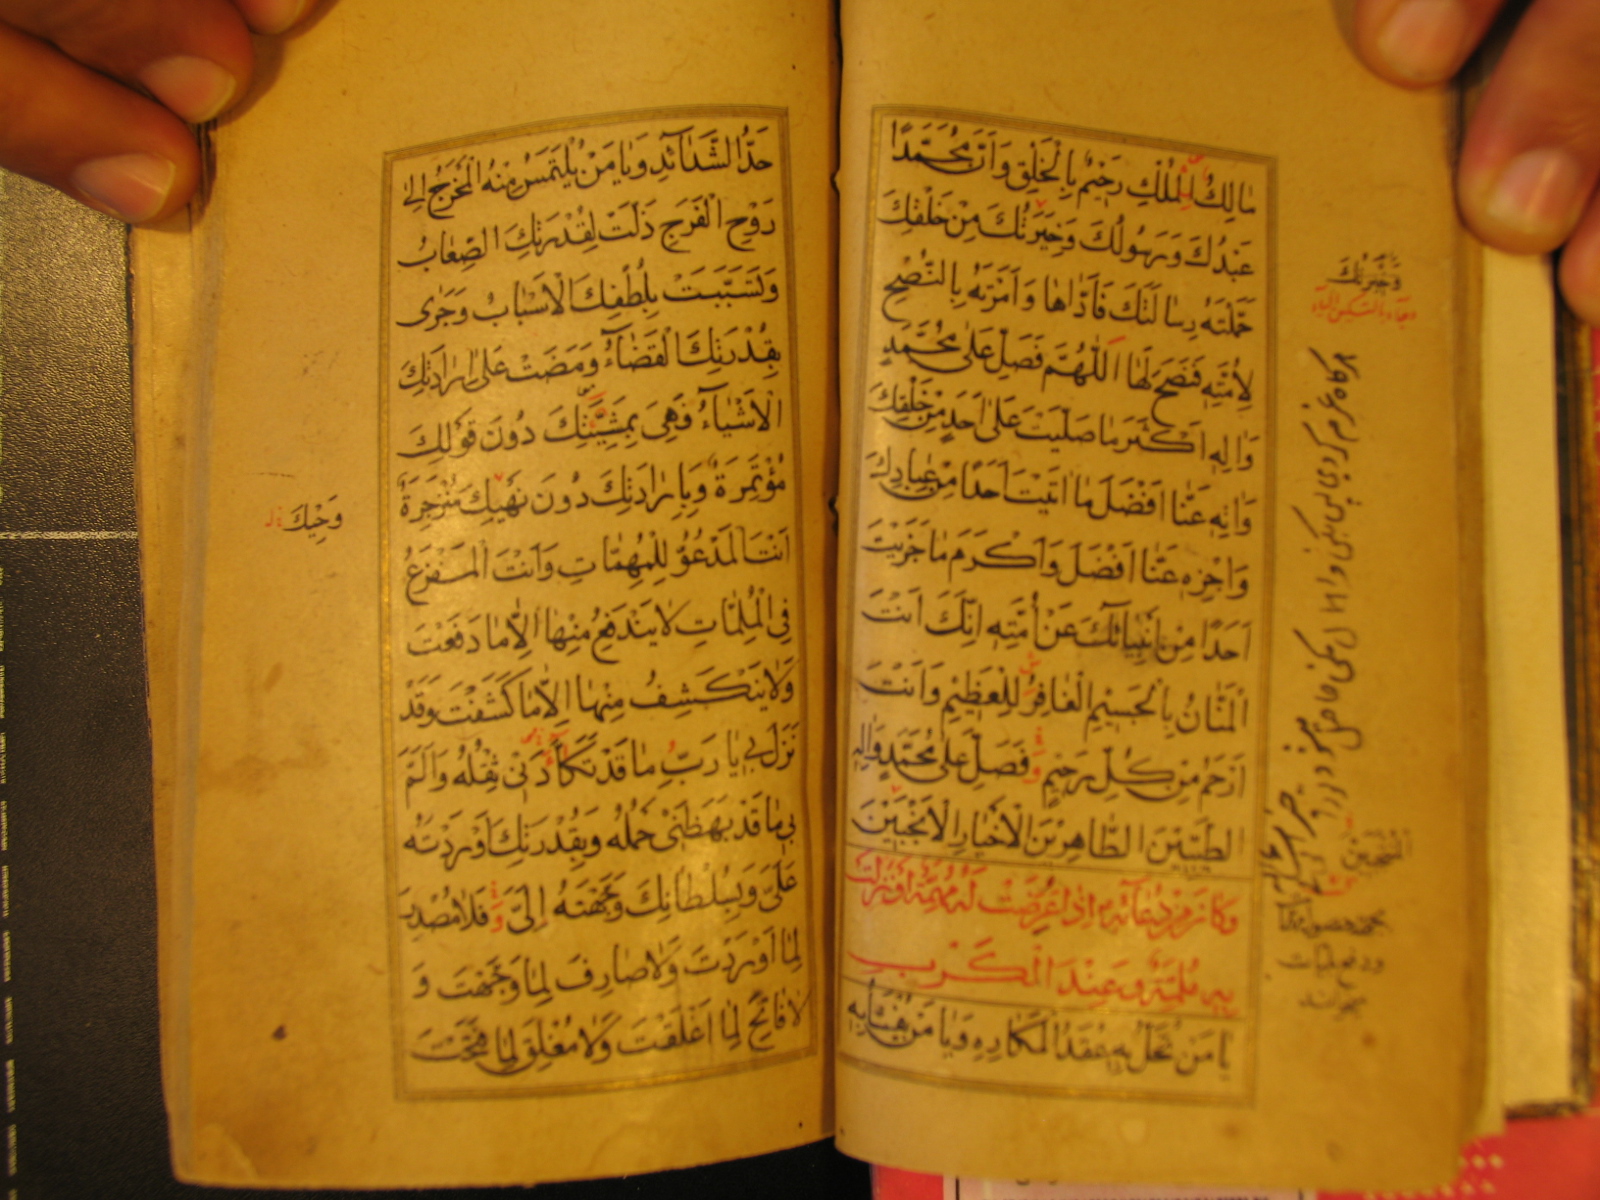 مَالِكُ الْمُلْكِ رَحِيمٌ بِالْخَلْقِ وَاَنَّ مُحَمَّدًا
عَبْدُكَ وَرَسُولُكَ وَخِيَرَتُكَ مِنْ خَلْقِكَ
حَمَّلْتَهُ رِسَالَتَكَ فَاَدَّاهَا وَاَمَرْتَهُ بِالنُّصْحِ
لِاُمَّتِهِ فَنَصَحَ لَهَا اَللّٰهُمَّ فَصَلِّ عَلٰى مُحَمَّدٍ
وَاٰلِهِ اَكْثَرَ مَا صَلَّيْتَ عَلٰى اَحَدٍ مِنْ خَلْقِكَ
وَاٰتِهِ عَنَّا اَفْضَلَ مَا اٰتَيْتَ اَحَدًا مِنْ عِبَادِكَ
وَاجْزِهِ عَنَّا اَفْضَلَ وَاَكْرَمَ مَا جَزَيْتَ
اَحَدًا مِنْ اَنْبِيَآئِكَ عَنْ اُمَّتِهِ اِنَّكَ اَنْتَ
الْمَنَّانُ بِالْجَسِيمِ الْغَافِرُ لِلْعَظِيمِ وَاَنْتَ
اَرْحَمُ مِنْ كُلِّ رَحِيمٍ فَصَلِّ عَلٰى مُحَمَّدٍ وَاٰلِهِ
الطَّيِّبِينَ الطَّاهِرِينَ الْاَخْيَارِ الْاَنْجَبِينَ
وَكَانَ مِنْ دُعَآئِهِ اِذَا عَرَضَتْ لَهُ مُهِمَّةٌ اَوْ نَزَلَتْ
بِهِ مُلِمَّةٌ وَعِنْدَ الْكَرْبِ
يَا مَنْ تُحَلُّ بِهِ عُقَدُ الْمَكَارِهِ وَيَا مَنْ يُفْثَأُ بِهِ
وَخِيَرَتُكَ
ودفع بليات
بخواند
حَدُّ الشَّدَآئِدِ وَيَا مَنْ يُلْتَمَسُ مِنْهُ الْمَخْرَجُ اِلٰى
رَوْحِ الْفَرَجِ ذَلَّتْ لِقُدْرَتِكَ الصِّعَابُ
وَتَسَبَّبَتْ بِلُطْفِكَ الْاَسْبَابُ وَجَرٰى
بِقُدْرَتِكَ الْقَضَآءُ وَمَضَتْ عَلٰى اِرَادَتِكَ
الْاَشْيَآءُ فَهِيَ بِمَشِيَّتِكَ دُونَ قَوْلِكَ
مُؤْتَمِرَةٌ وَبِاِرَادَتِكَ دُونَ نَهْيِكَ مُنْزَجِرَةٌ
اَنْتَ الْمَدْعُوُّ لِلْمُهِمَّاتِ وَاَنْتَ الْمَفْزَعُ
فِي الْمُلِمَّاتِ لَا يَنْدَفِعُ مِنْهَا اِلَّا مَا دَفَعْتَ
وَلَا يَنْكَشِفُ مِنْهَا اِلَّا مَا كَشَفْتَ وَقَدْ
نَزَلَ بِي يَا رَبِّ مَا قَدْ تَكَأَّدَنِي ثِقْلُهُ وَاَلَمَّ
بِي مَا قَدْ بَهَظَنِي حَمْلُهُ وَبِقُدْرَتِكَ اَوْرَدْتَهُ
عَلَيَّ وَبِسُلْطَانِكَ وَجَّهْتَهُ اِلَيَّ فَلَا مُصْدِرَ
لِمَا اَوْرَدْتَ وَلَا صَارِفَ لِمَا وَجَّهْتَ وَ
لَا فَاتِحَ لِمَا اَغْلَقْتَ وَلَا مُغْلِقَ لِمَا فَتَحْتَ
وَحْيِكَ